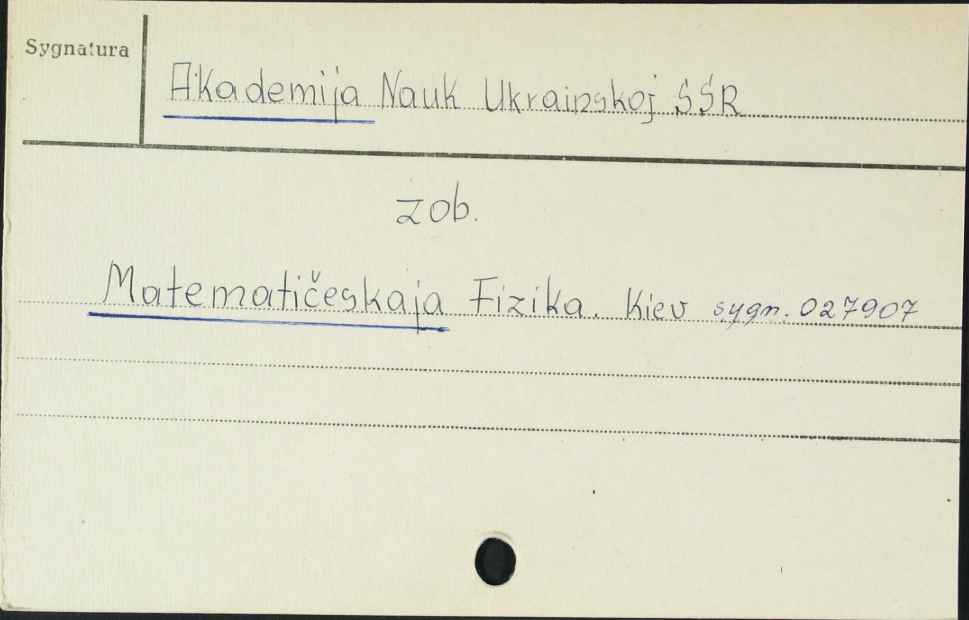 Sygnatura
Akademija Nauk Ukrainskoj SSR
zob.
Matematičeskaja Fizika. Kiev sygn. 027907